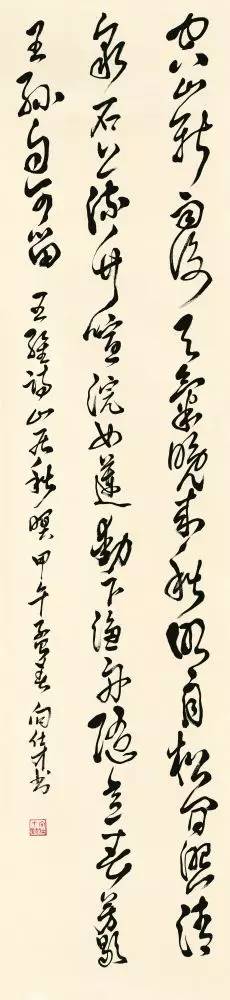 空山新雨後天氣晚來秋明月松間照清
泉石上流竹喧浣女蓮動下漁舟隨意春芳歇
王孫自可留 王維詩山居秋暝 甲午孟春 向仕才書